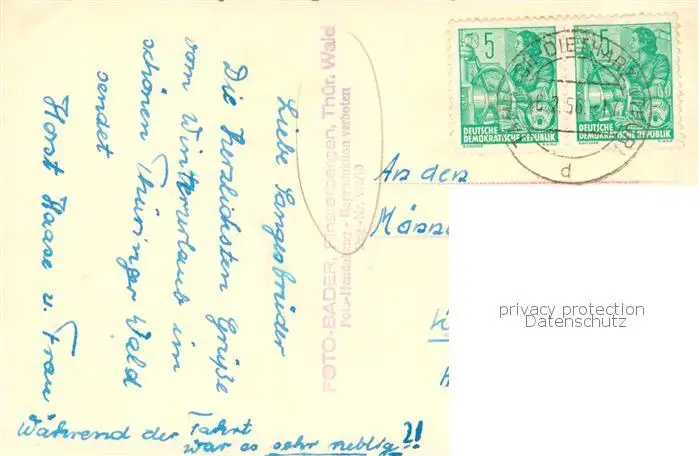 Liebe Sangesbrüder
Die herzlichsten Grüße
vom Winterurlaub im
schönen Thüringer Wald
sendet
Horst Haase u. Frau
Während der Fahrt
war es sehr neblig?!
FOTO-BADER, Finsterbergen, Thür. Wald
Foto-Handabzug - Reproduktion verboten
An den
Männ
5
DEUTSCHE
DEMOKRATISCHE REPUBLIK
5
DEUTSCHE
DEMOKRATISCHE REPUBLIK
DIETHARZ
56
d
privacy protection
Datenschutz